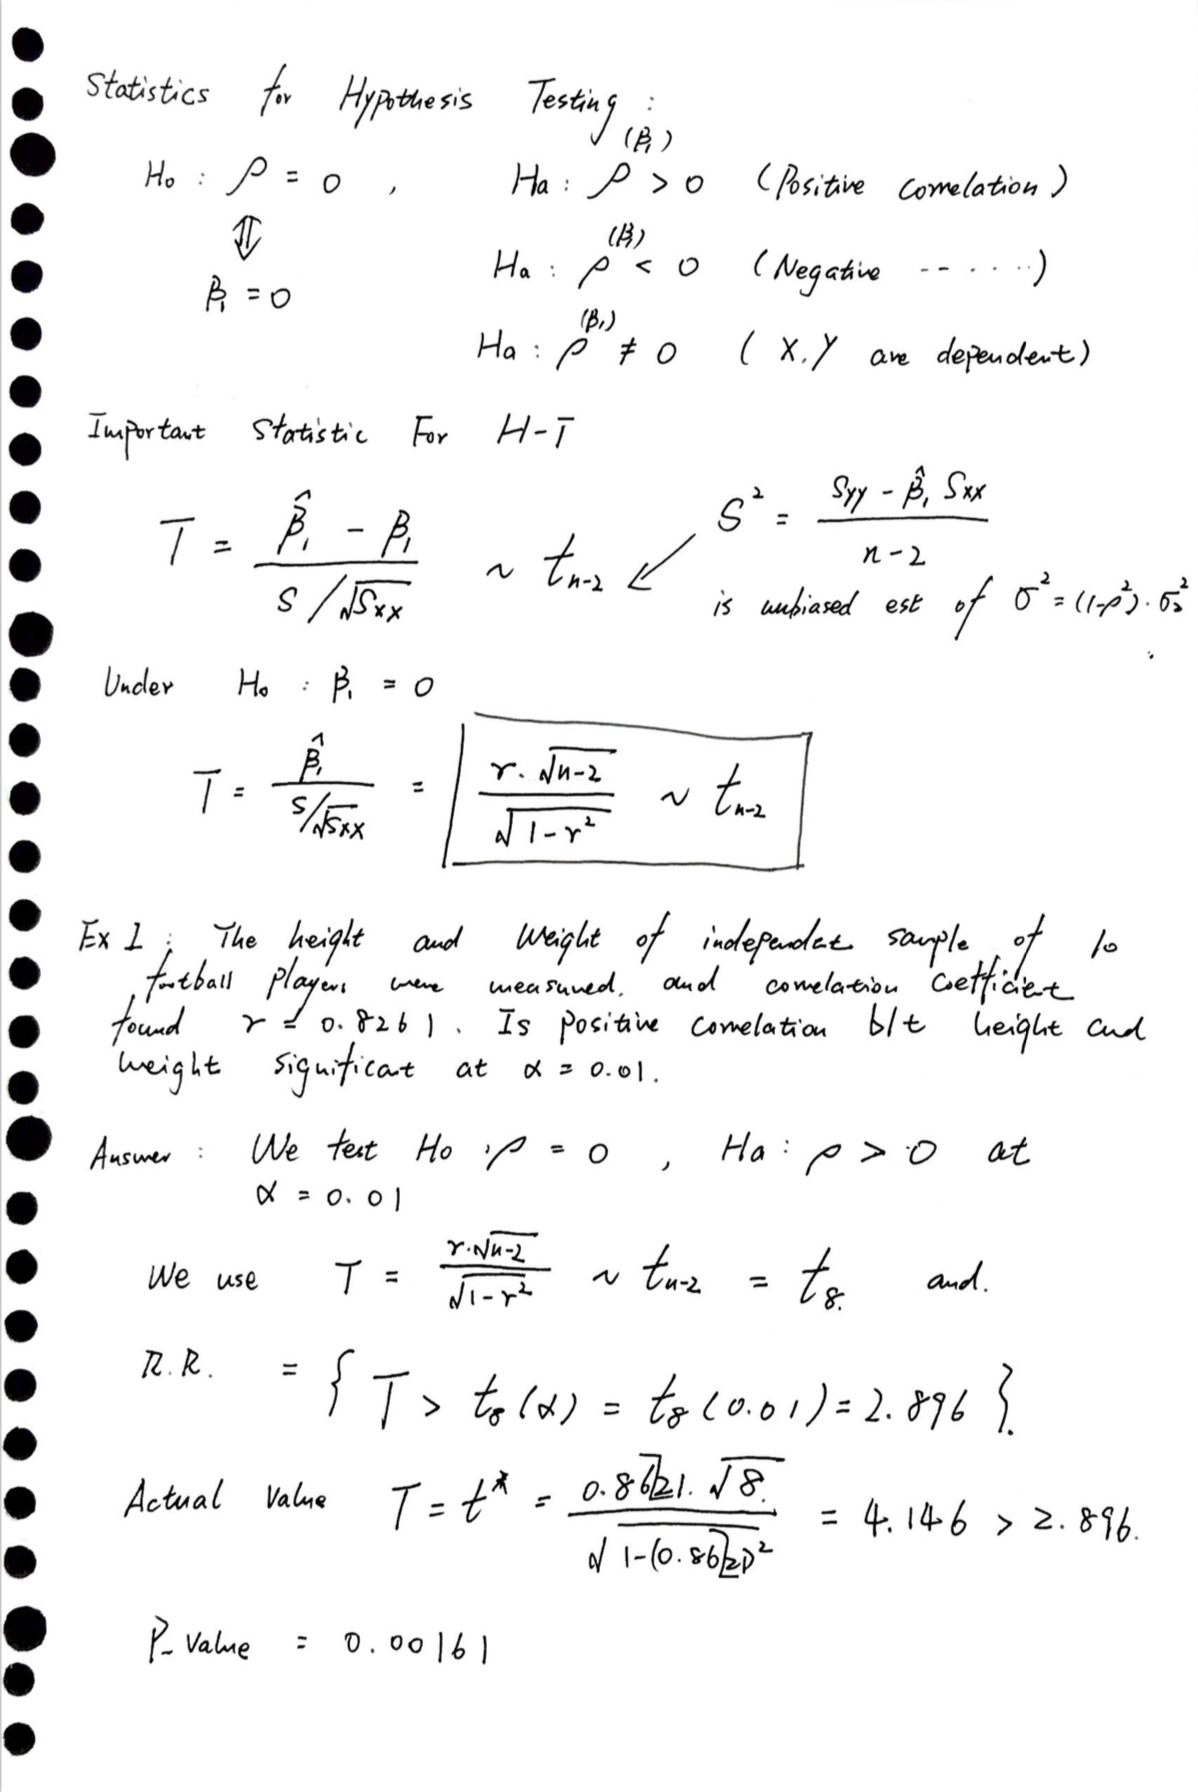 Statistics for Hypothesis Testing :
H₀ : ρ = 0 , Ha : ρ (β₁) > 0 (Positive correlation)
⇕
β₁ = 0
Ha : ρ (β₁) < 0 (Negative -- ·····)
Ha : ρ (β₁) ≠ 0 ( X, Y are dependent)
Important Statistic For H-T
T = (β̂₁ - β₁) / (S/√Sxx) ~ t_{n-2} ↙ S² = (Syy - β̂₁ Sxx) / (n-2)
is unbiased est of σ² = (1-ρ²)·σ₂²
Under H₀ : β₁ = 0
T = β̂₁ / (S/√Sxx) = r·√(n-2) / √(1-r²) ~ t_{n-2}
Ex 1 : The height and weight of independet sample of 10
football players were measured, and correlation coefficient
found r = 0.8261. Is positive correlation b/t height and
weight significat at α = 0.01.
Answer : We test H₀ : ρ = 0 , Ha : ρ > 0 at
α = 0.01
We use T = r·√(n-2) / √(1-r²) ~ t_{n-2} = t₈. and.
R.R. = { T > t₈(α) = t₈(0.01) = 2.896 }.
Actual Value T = t* = 0.8621·√8 / √(1-(0.8621)²) = 4.146 > 2.896.
P-value = 0.00161